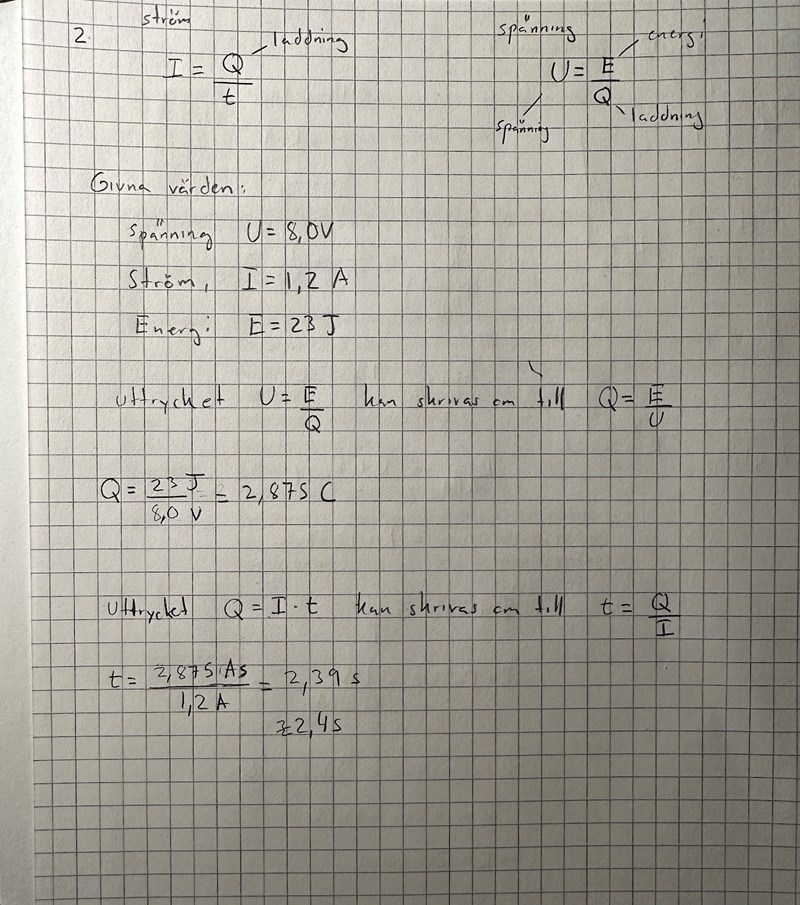 2.
ström
I = Q/t
laddning
spänning
U = E/Q
energi
spänning
laddning
Givna värden:
Spänning U = 8,0V
Ström, I = 1,2 A
Energi: E = 23 J
Uttrycket U = E/Q kan skrivas om till Q = E/U
Q = 23 J/8,0 V = 2,875 C
Uttrycket Q = I · t kan skrivas om till t = Q/I
t = 2,875 As/1,2 A = 2,39 s
≈ 2,4 s